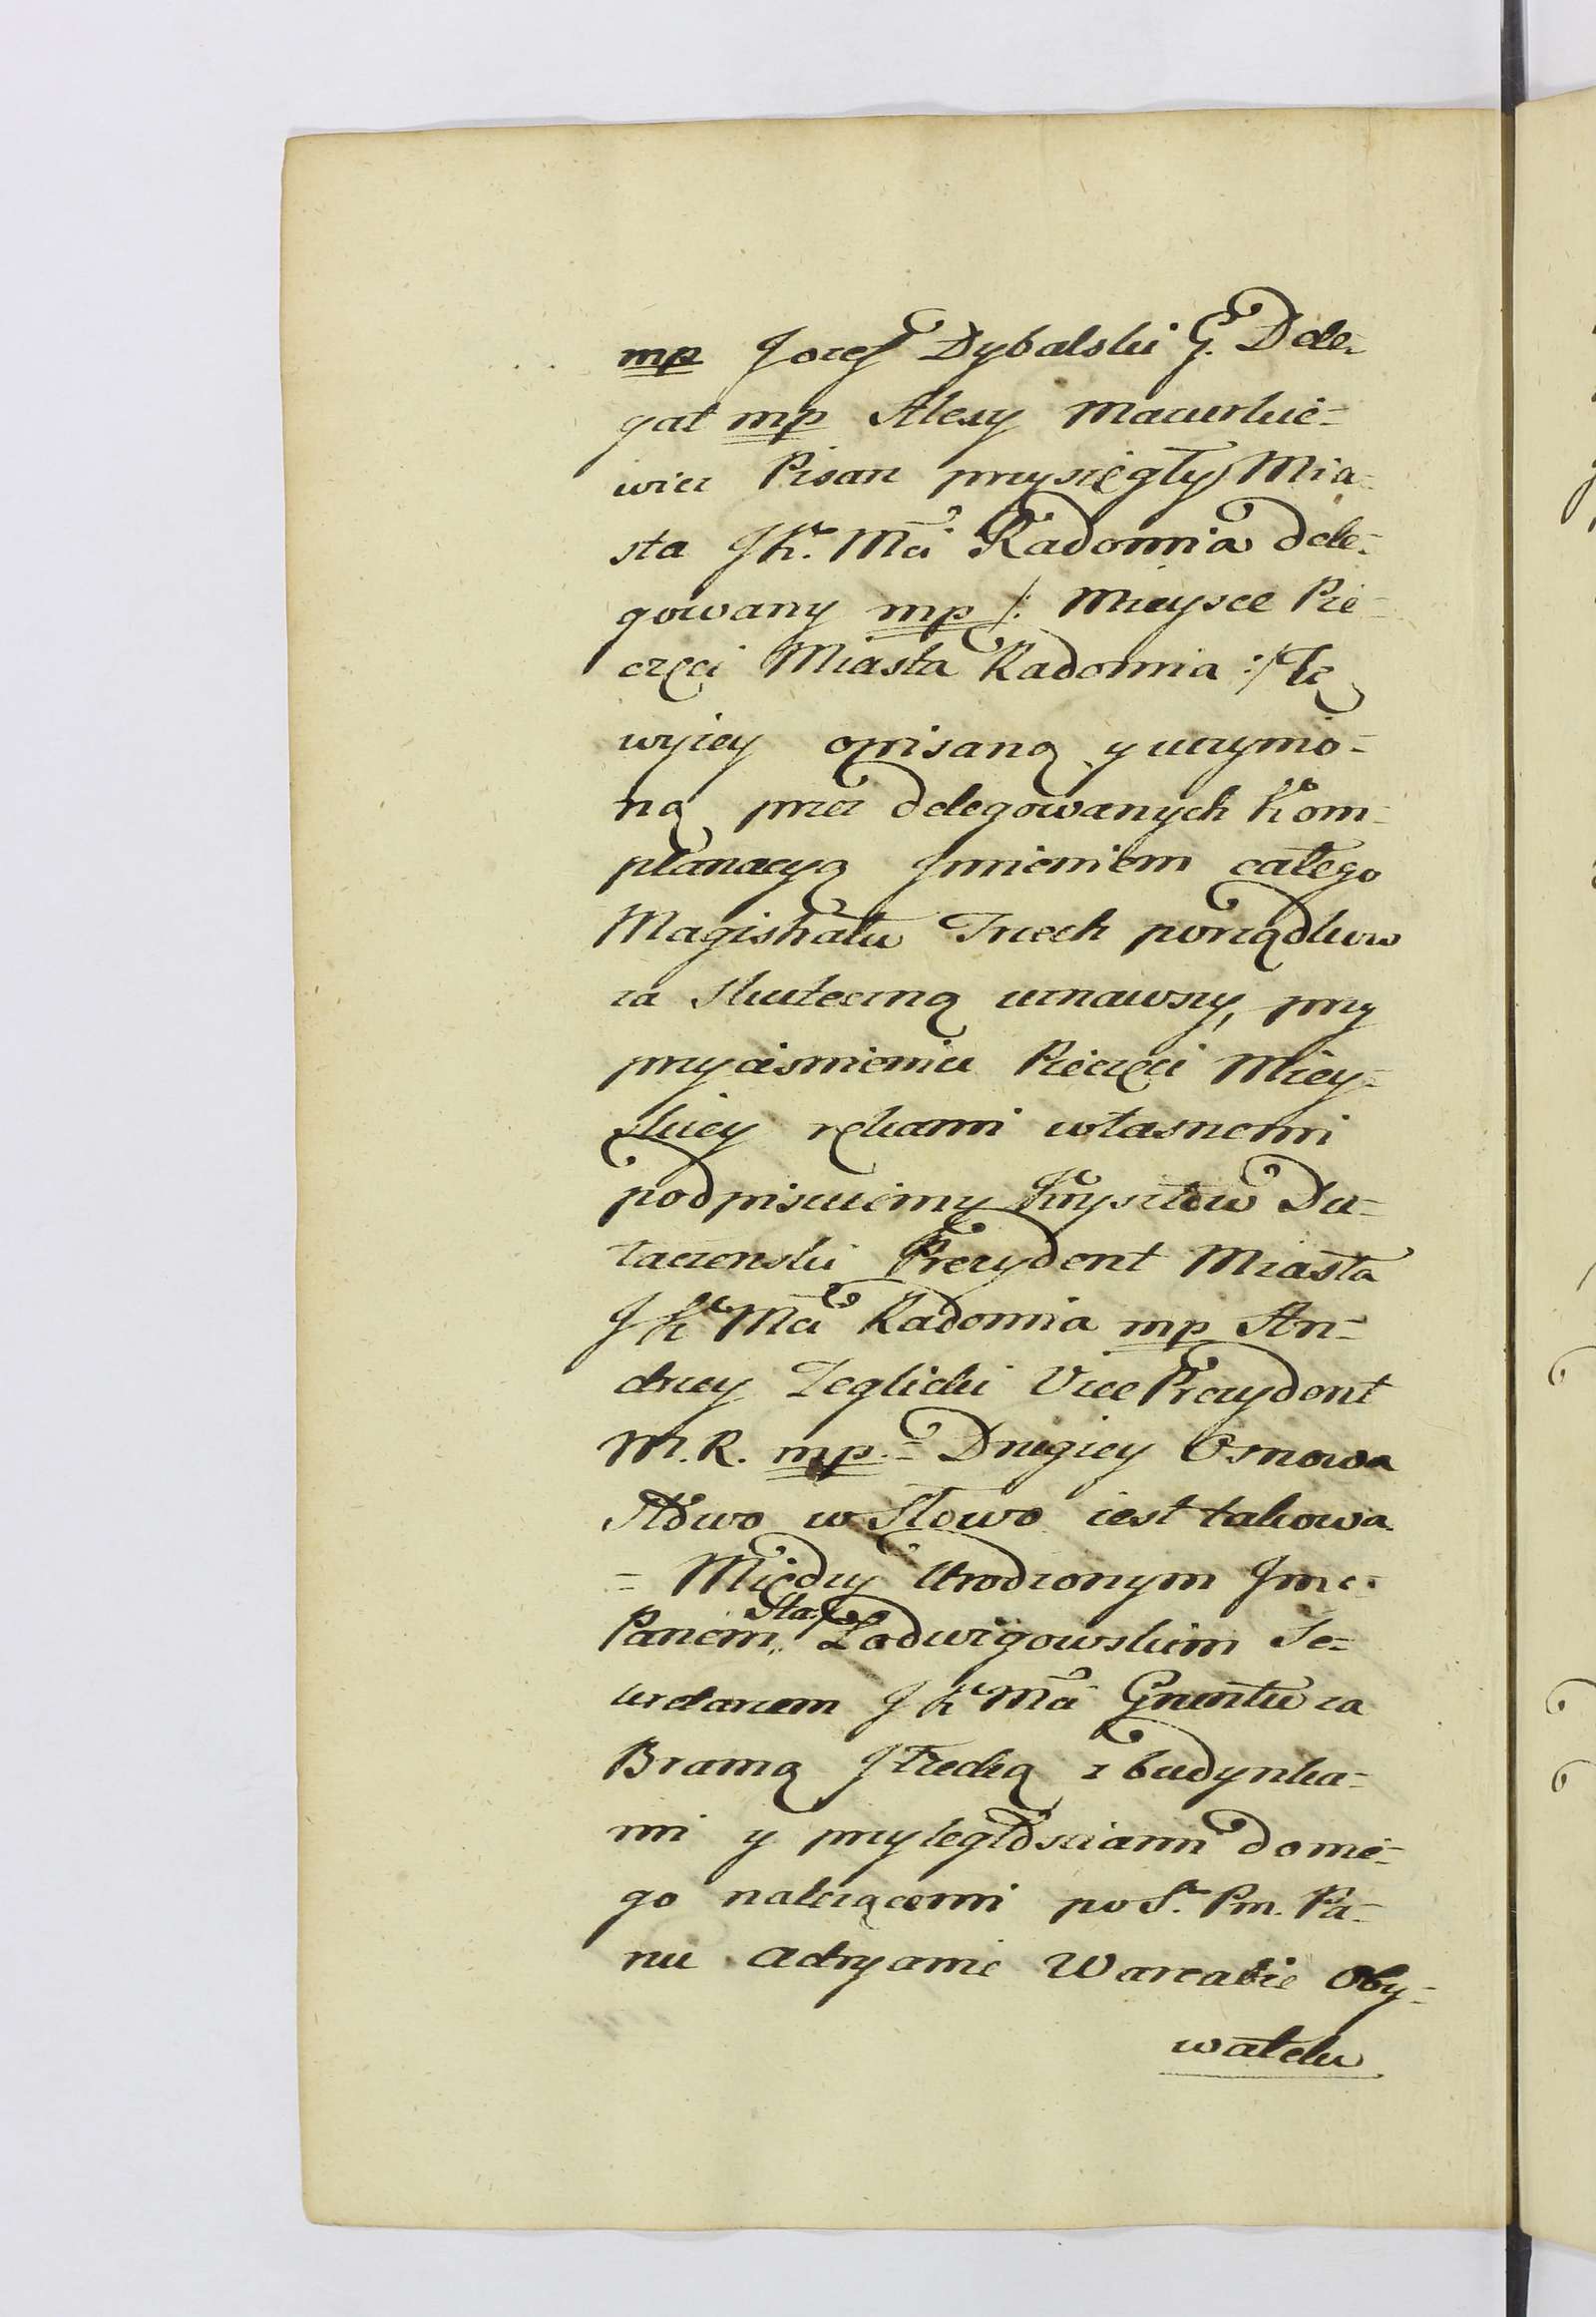 mp Jozef Dybalski G. Dele-
gat mp Alexy Macurkie-
wicz Pisarz przysięgły Mia-
sta JKr. Mci Radomia dele-
gowany mp /: Mieysce Pie-
częci Miasta Radomia :/ Tę
wyżey opisaną y uczynio-
ną przez delegowanych Kom-
planacyą Jmieniem całego
Magistratu Trzech porządkow
za skuteczną uznawszy, przy
przyciśnieniu Pieczęci Miey-
skiey rękami własnemi
podpisuiemy Krysztow Du-
taczenski Prezydent Miasta
JKr Mci Radomia mp An-
drzey Zeglicki Vice Prezydent
M. R. mp. = Drugiey Osnowa
słowo w Słowo iest takowa
= Między Urodzonym Jmc.
Panem Sta: Lodwigowskim Se-
werdanem JKr Mci Gruntu za
Bramą Iłżecką z budynka-
mi y przyległosciami do nie-
go należącemi po S. Pm. Pa-
nu Adryanie Warcabie Oby-
watelu